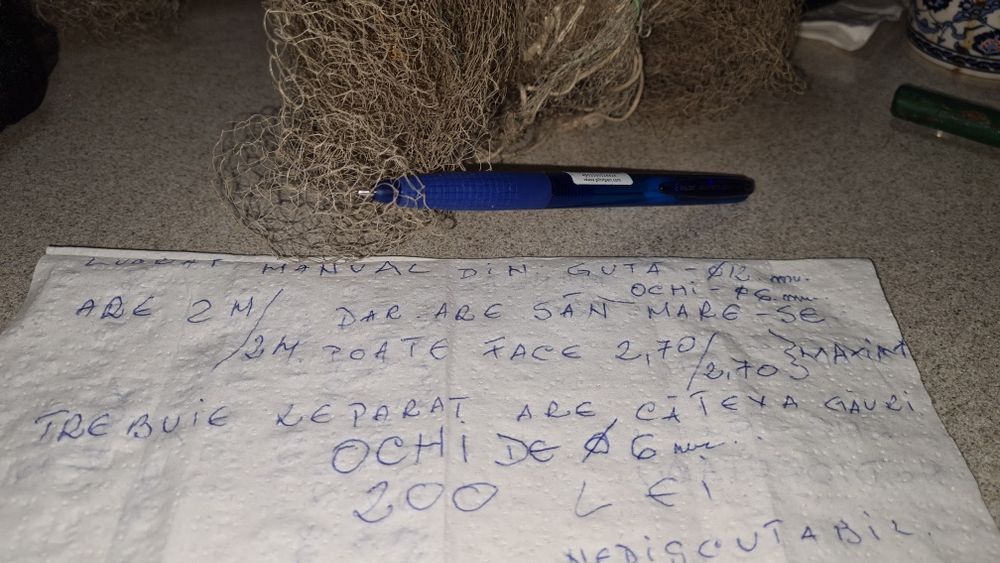 LUCRAT MANUAL DIN GUTA - Ø12 mm.
OCHI - Ø6 mm.
ARE 2M/ DAR ARE SÂN MARE-SE
/2M POATE FACE 2,70/2,70 } MAXIM
TREBUIE REPARAT ARE CÂTEVA GĂURI
OCHI DE Ø 6 mm.
200 LEI
NEDISCUTABIL.